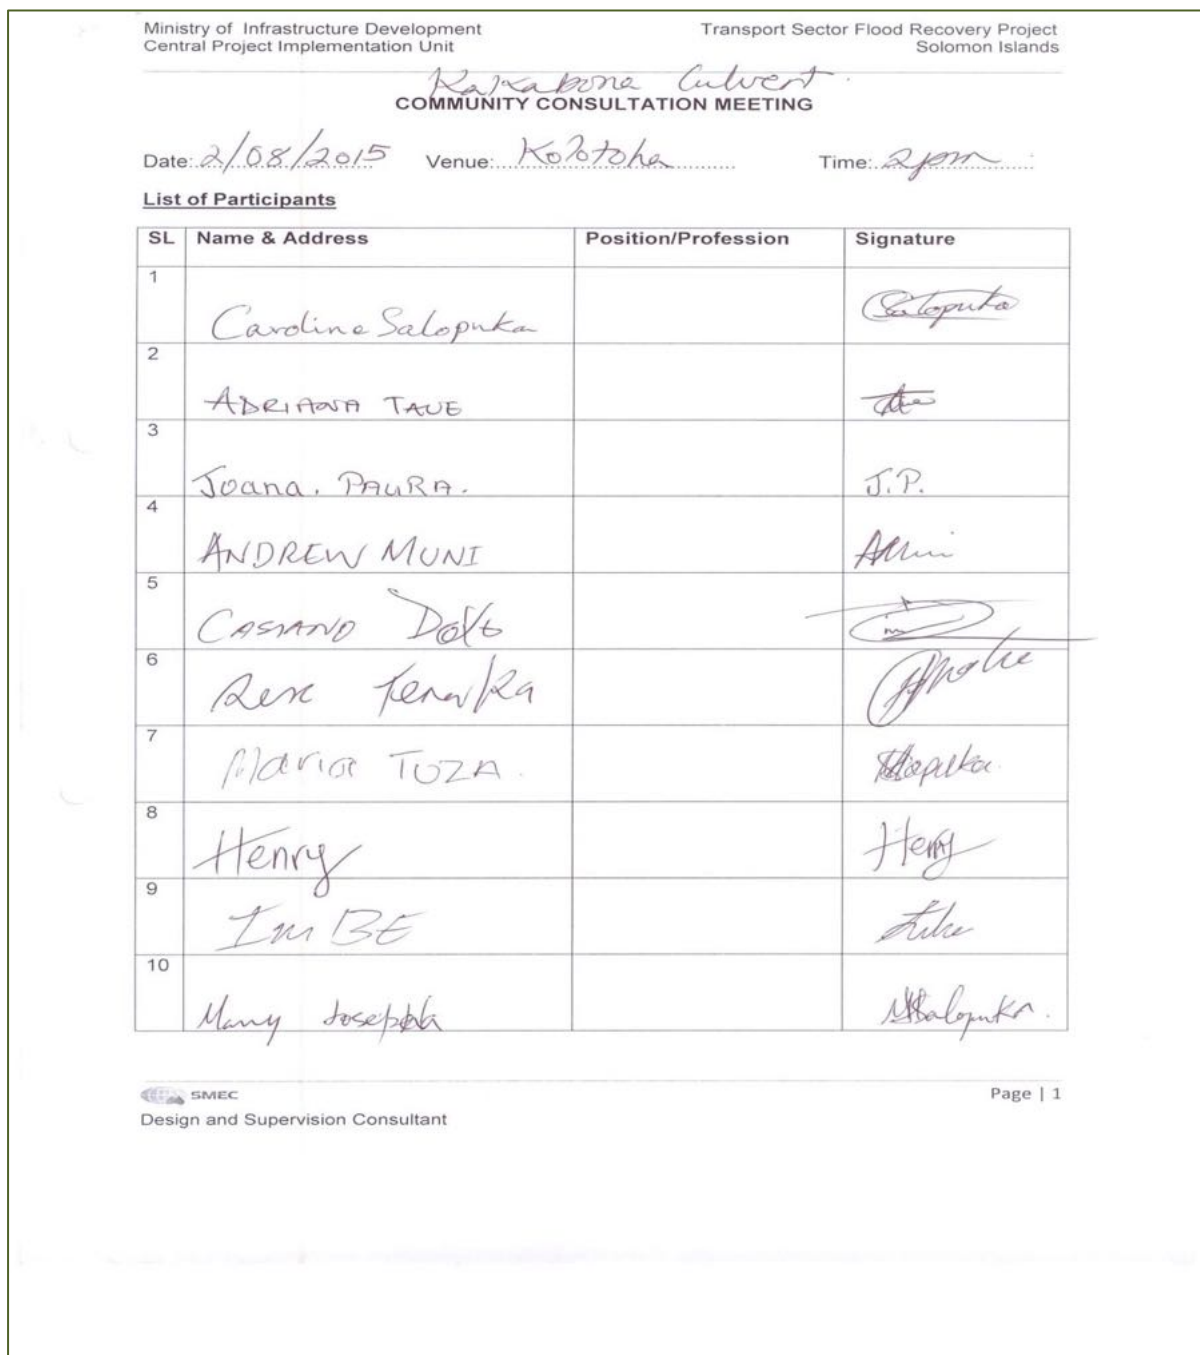 Ministry of Infrastructure Development Transport Sector Flood Recovery Project
Central Project Implementation Unit Solomon Islands
Kakabona Culvert.
COMMUNITY CONSULTATION MEETING
Date: 2/08/2015 Venue: Kolotoha Time: 2pm
List of Participants
SL Name & Address Position/Profession Signature
1 Caroline Salopuka Salopuka
2 ADRIANA TAUE
3 Joana. PAURA. J.P.
4 ANDREW MUNI
5 CASIANO
6 Rex
7 Maria TUZA.
8 Henry Henry
9
10 Mary Joseph
SMEC Page | 1
Design and Supervision Consultant